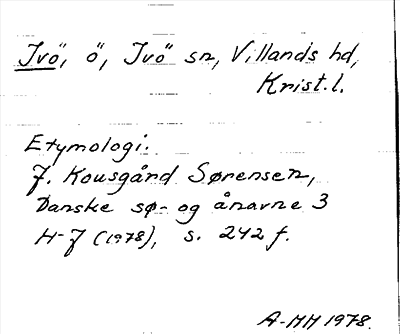 Ivö, ö, Ivö sn, Villands hd,
Krist. l.
Etymologi.
J. Kousgård Sørensen,
Danske sø- og ånavne 3
H-J (1978), s. 242 f.
A-MH 1978.